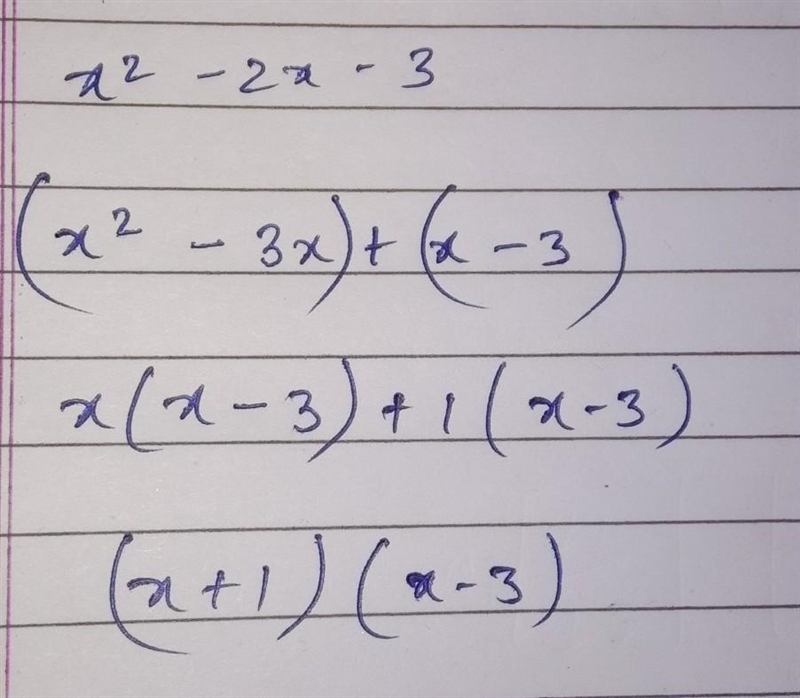 x² - 2x - 3
(x² - 3x) + (x - 3)
x(x - 3) + 1(x - 3)
(x + 1)(x - 3)